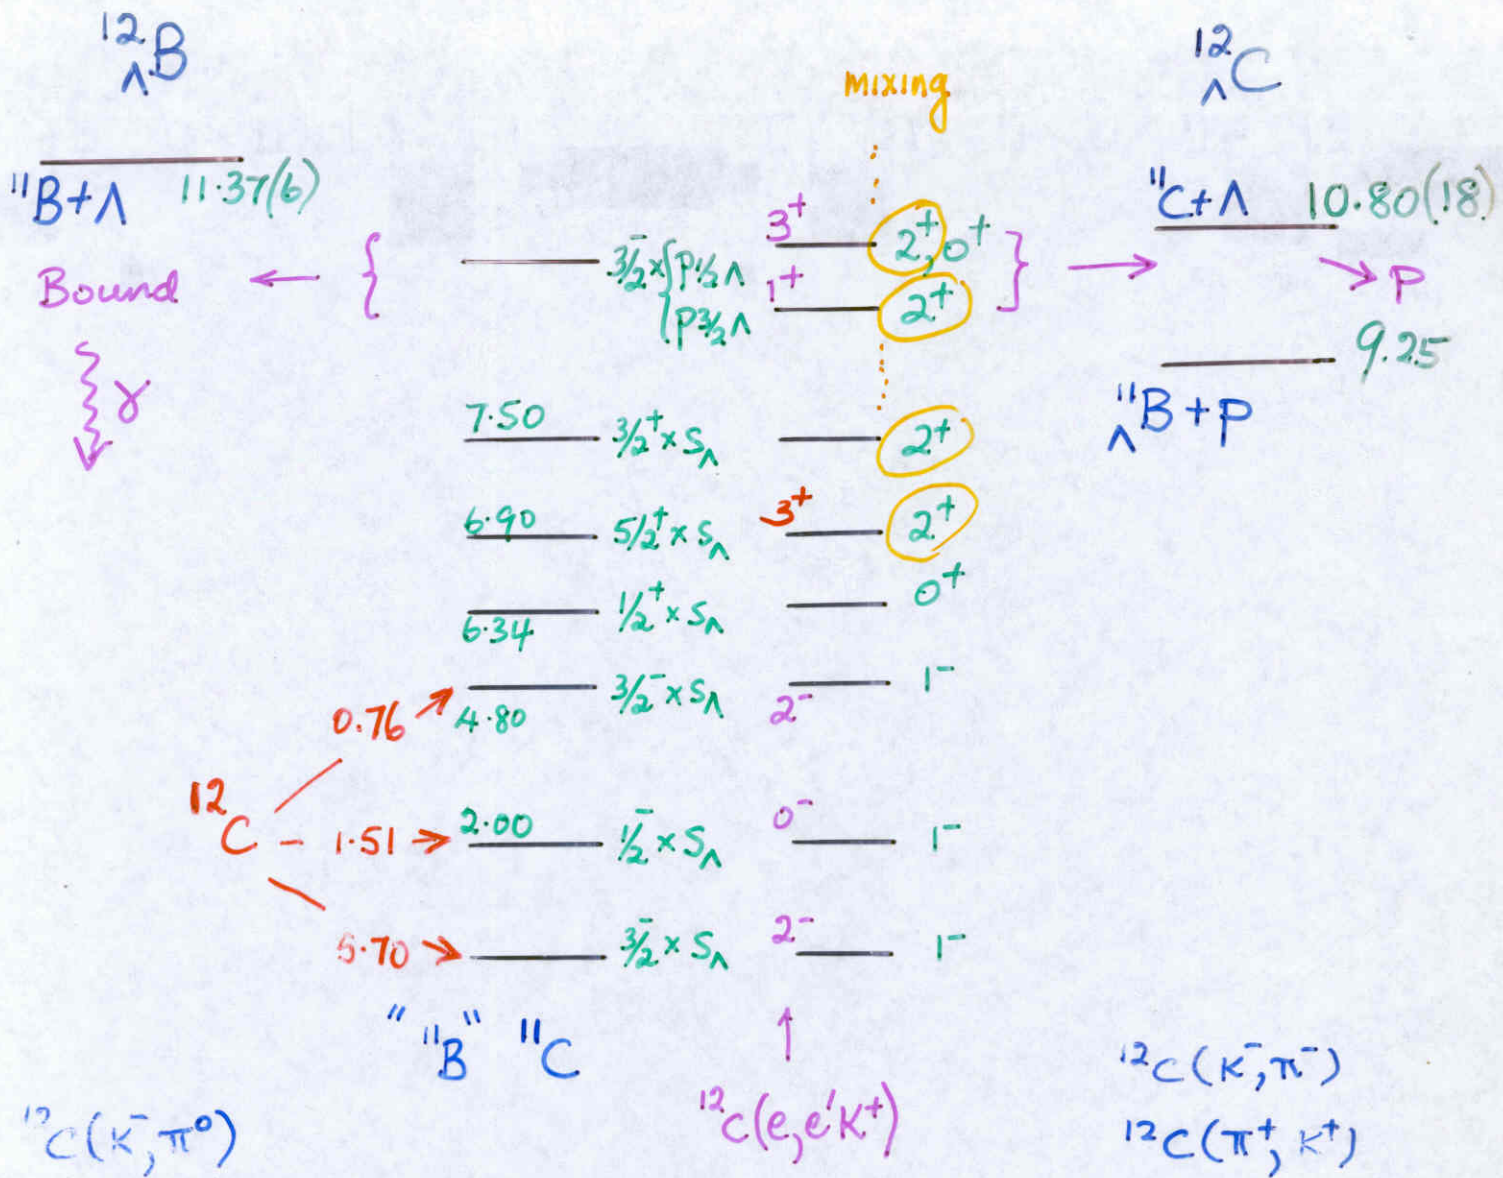 ¹²ΛB
mixing
¹²ΛC
¹¹B+Λ 11.37(6)
¹¹C+Λ 10.80(18)
3⁺ 2⁺, 0⁺
Bound ← { 3/2⁻ × { p1/2Λ } → → p
p3/2Λ
1⁺ 2⁺
γ
9.25
¹¹ΛB+p
7.50 3/2⁺ × sΛ 2⁺
6.90 5/2⁺ × sΛ 3⁺ 2⁺
6.34 1/2⁺ × sΛ 0⁺
0.76 → 4.80 3/2⁻ × sΛ 2⁻ 1⁻
¹²C - 1.51 → 2.00 1/2⁻ × sΛ 0⁻ 1⁻
5.70 → 3/2⁻ × sΛ 2⁻ 1⁻
" ¹¹B " ¹¹C
↑
¹²C(K⁻,π⁰)
¹²C(e,e'K⁺)
¹²C(K⁻,π⁻)
¹²C(π⁺,K⁺)